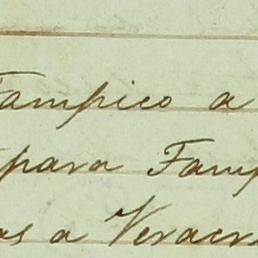 Tampico a
para Tamp
os a Veracr